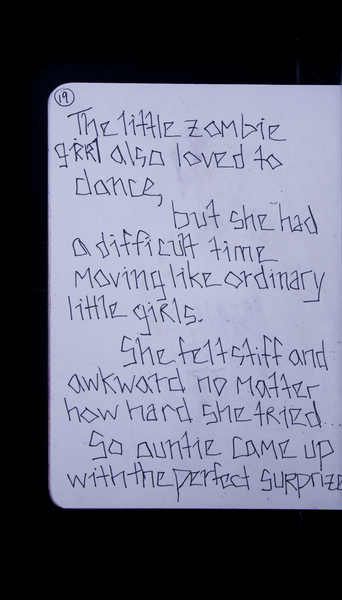 19
The little zombie
grrl also loved to
dance,
but she had
a difficult time
moving like ordinary
little girls.
She felt stiff and
awkward no matter
how hard she tried...
So auntie came up
with the perfect surprize